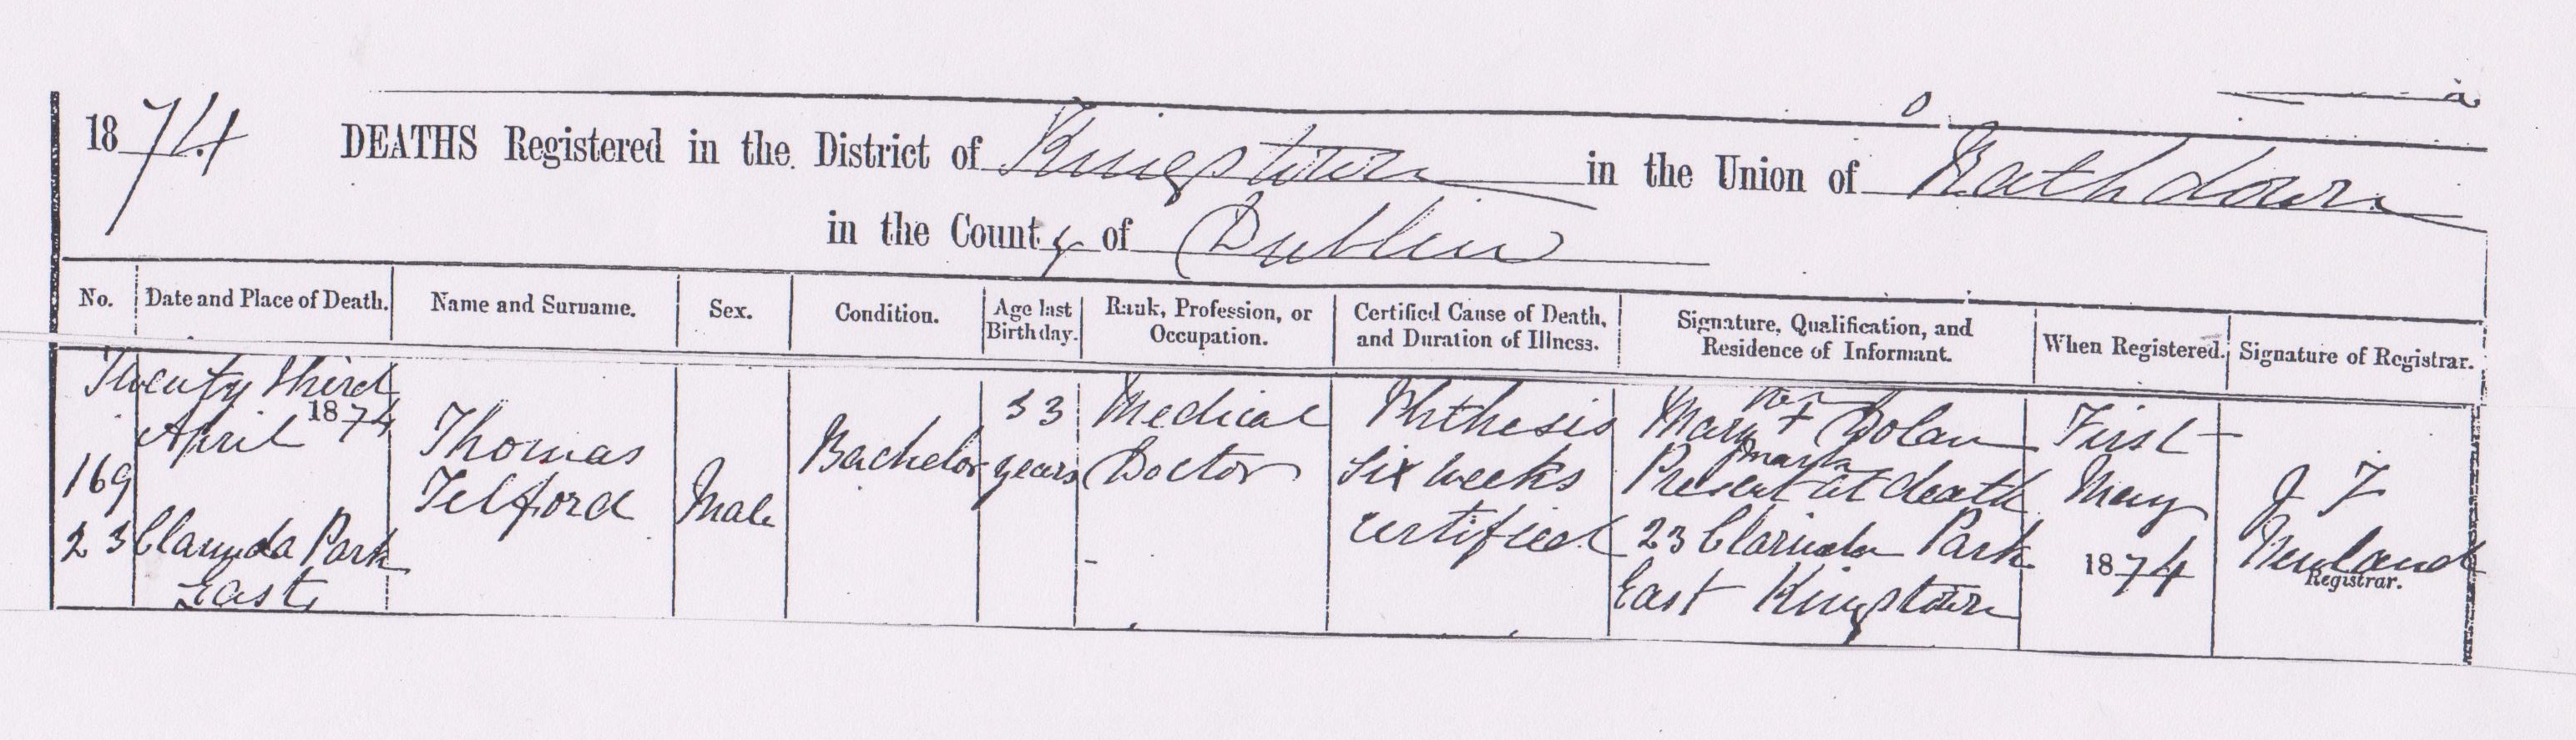 1874 DEATHS Registered in the District of Kingstown in the Union of Rathdown
in the County of Dublin
No. Date and Place of Death. Name and Surname. Sex. Condition. Age last Birthday. Rank, Profession, or Occupation. Certified Cause of Death, and Duration of Illness. Signature, Qualification, and Residence of Informant. When Registered. Signature of Registrar.
169
Twenty third
April 1874
23 Clarinda Park
East
Thomas
Telford
Male
Bachelor
33
years
Medical
Doctor
Phthesis
Six weeks
Certified
her
Mary + Dolan
mark
Present at death
23 Clarinda Park
East Kingstown
First
May
1874
J F
Newland
Registrar.